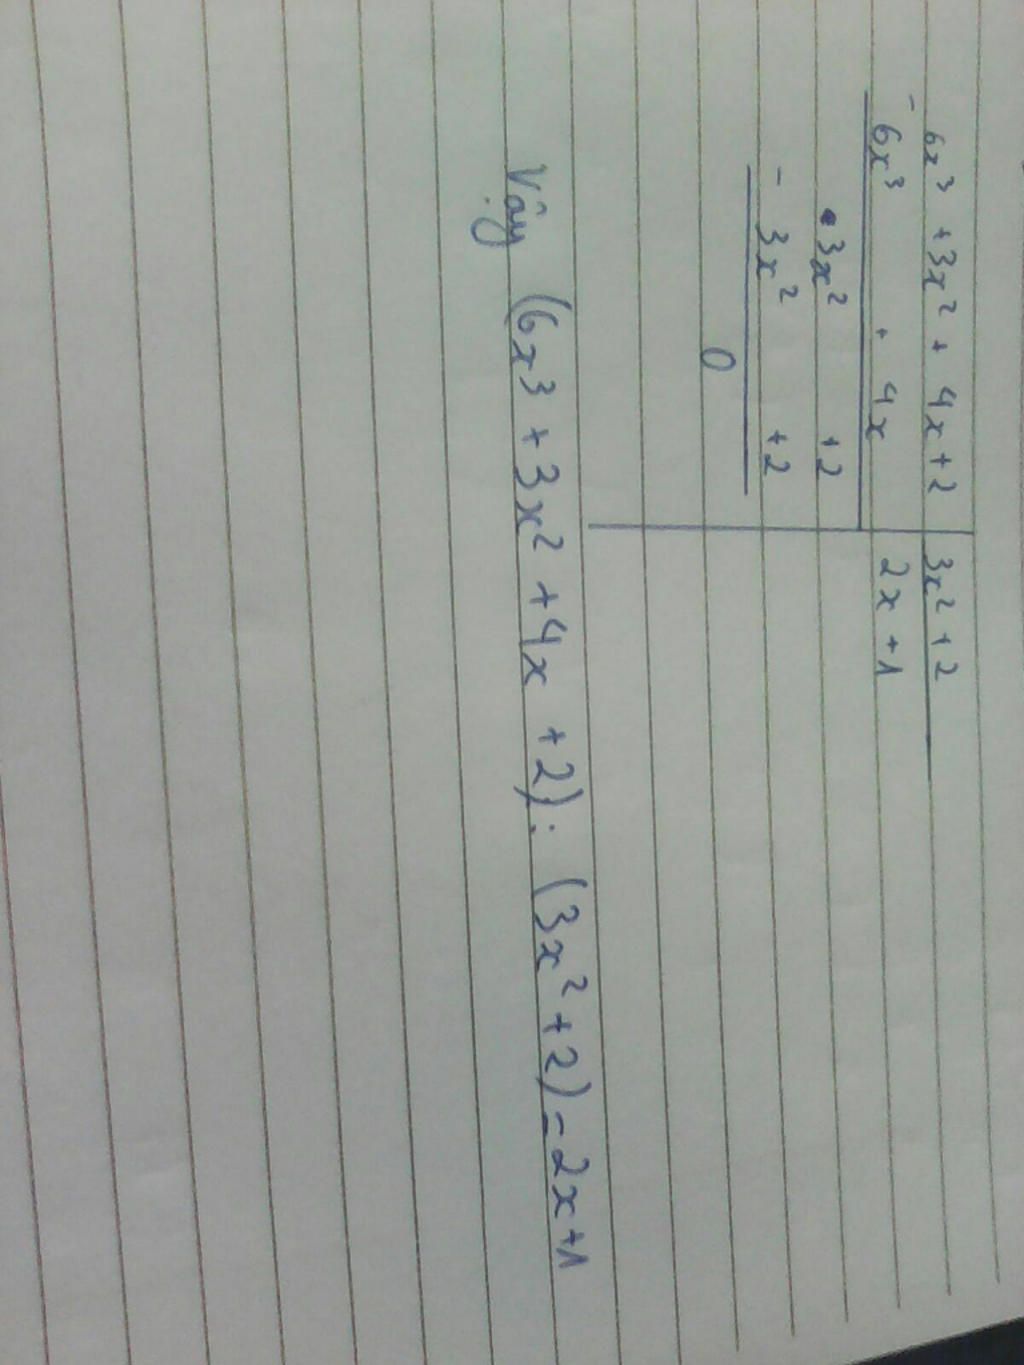 6x³ + 3x² + 4x + 2 | 3x² + 2
- 6x³ + 4x | 2x + 1
3x² + 2
- 3x² + 2
0
Vậy (6x³ + 3x² + 4x + 2) : (3x² + 2) = 2x + 1